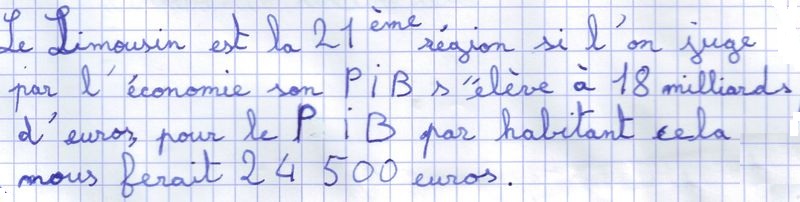 Le Limousin est la 21ème région si l'on juge
par l'économie son PiB s'élève à 18 milliards
d'euros, pour le PiB par habitant cela
nous ferait 24 500 euros.